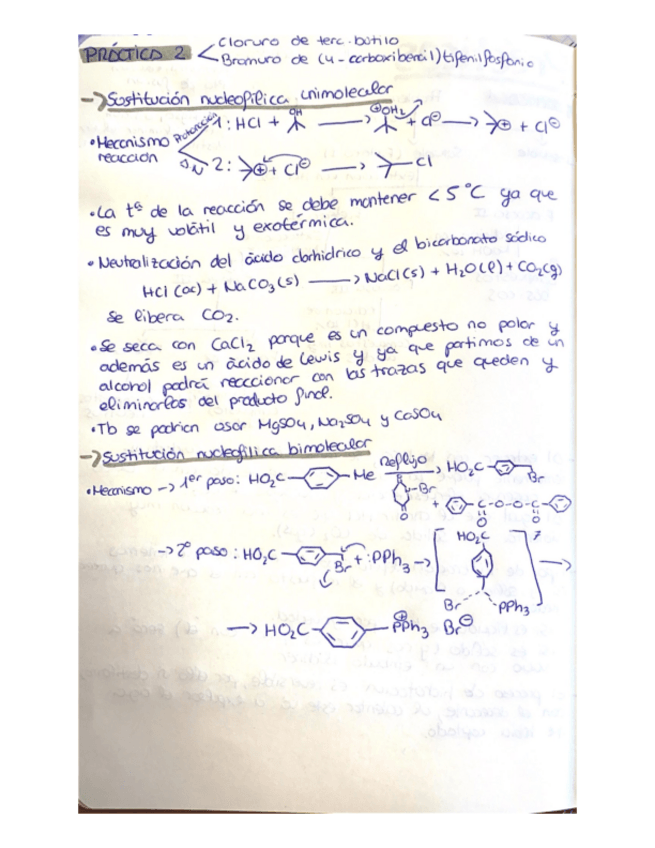 PRÁCTICA 2
Cloruro de terc-butilo
Bromuro de (4-carboxibencil)trifenilfosfonio
-> Sustitución nucleofílica unimolecular
• Mecanismo reacción
Protonación 1: HCl + OH ⟶ ⊕OH2 + Cl⊖ ⟶ ⊕ + Cl⊖
SN 2: ⊕ + Cl⊖ ⟶ Cl
• La tª de la reacción se debe mantener < 5 °C ya que
es muy volátil y exotérmica.
• Neutralización del ácido clorhídrico y el bicarbonato sódico
HCl (ac) + NaCO3(s) ⟶ NaCl(s) + H2O(l) + CO2(g)
se libera CO2.
• Se seca con CaCl2 porque es un compuesto no polar y
además es un ácido de Lewis y ya que partimos de un
alcohol podrá reaccionar con las trazas que queden y
eliminarlos del producto final.
• Tb se podrían usar MgSO4, Na2SO4 y CaSO4
-> Sustitución nucleofílica bimolecular
• Mecanismo -> 1er paso: HO2C Me Reflujo HO2C Br
O -Br O + C-O-O-C O O
-> 2º paso: HO2C Br + :PPh3 -> [ HO2C Br PPh3 ]≠ ->
-> HO2C ⊕PPh3 Br⊖